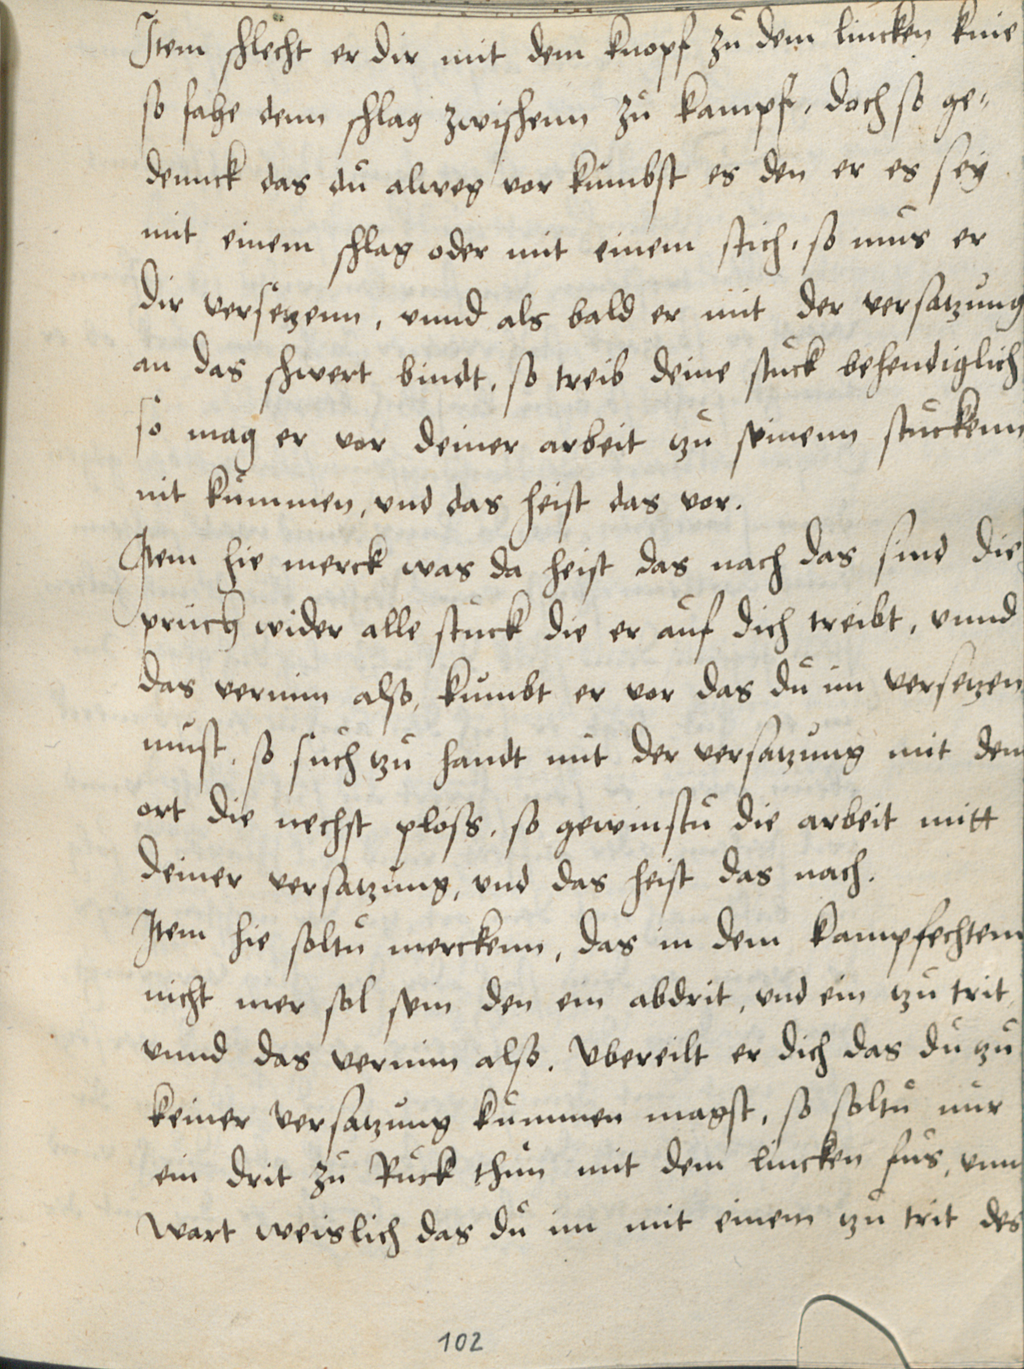 Item schlecht er dir mit dem knopf zů dem lincken knie
so fahe denn schlag zwischenn zů kampf, doch so ge-
denck das dů alweg vor kůmbst es den er es seÿ
mit einem schlag oder mit einem stich, so můs er
dir versetzenn, vnnd als bald er mit der versatzůng
an das schwert bindt, so treib deine stůck behendiglich
so mag er vor deiner arbeit tzů seinenn stůckenn
nit kůmmen, vnd das heist das vor.
Item hie merck was da heist das nach das sind die
prüch wider alle stůck die er aůf dich treibt, vnnd
das vernim also, kůmbt er vor das dů im versetzen
můst, so sůch tzů handt mit der versatzůng mit dem
ort die nechst ploss, so gewinstů die arbeit mitt
deiner versatzůng, vnd das heist das nach.
Item hie soltů merckenn, das in dem kampfechtenn
nicht mer sol sein den ein abdrit, vnd ein tzů trit
vnnd das vernim also. Vbereilt er dich das dů tzů
keiner versatzůng kůmmen magst, so soltů nůr
ein drit zů Růck thůn mit dem lincken fůs, vnn
wart weislich das dů im mit einem tzů trit des
102